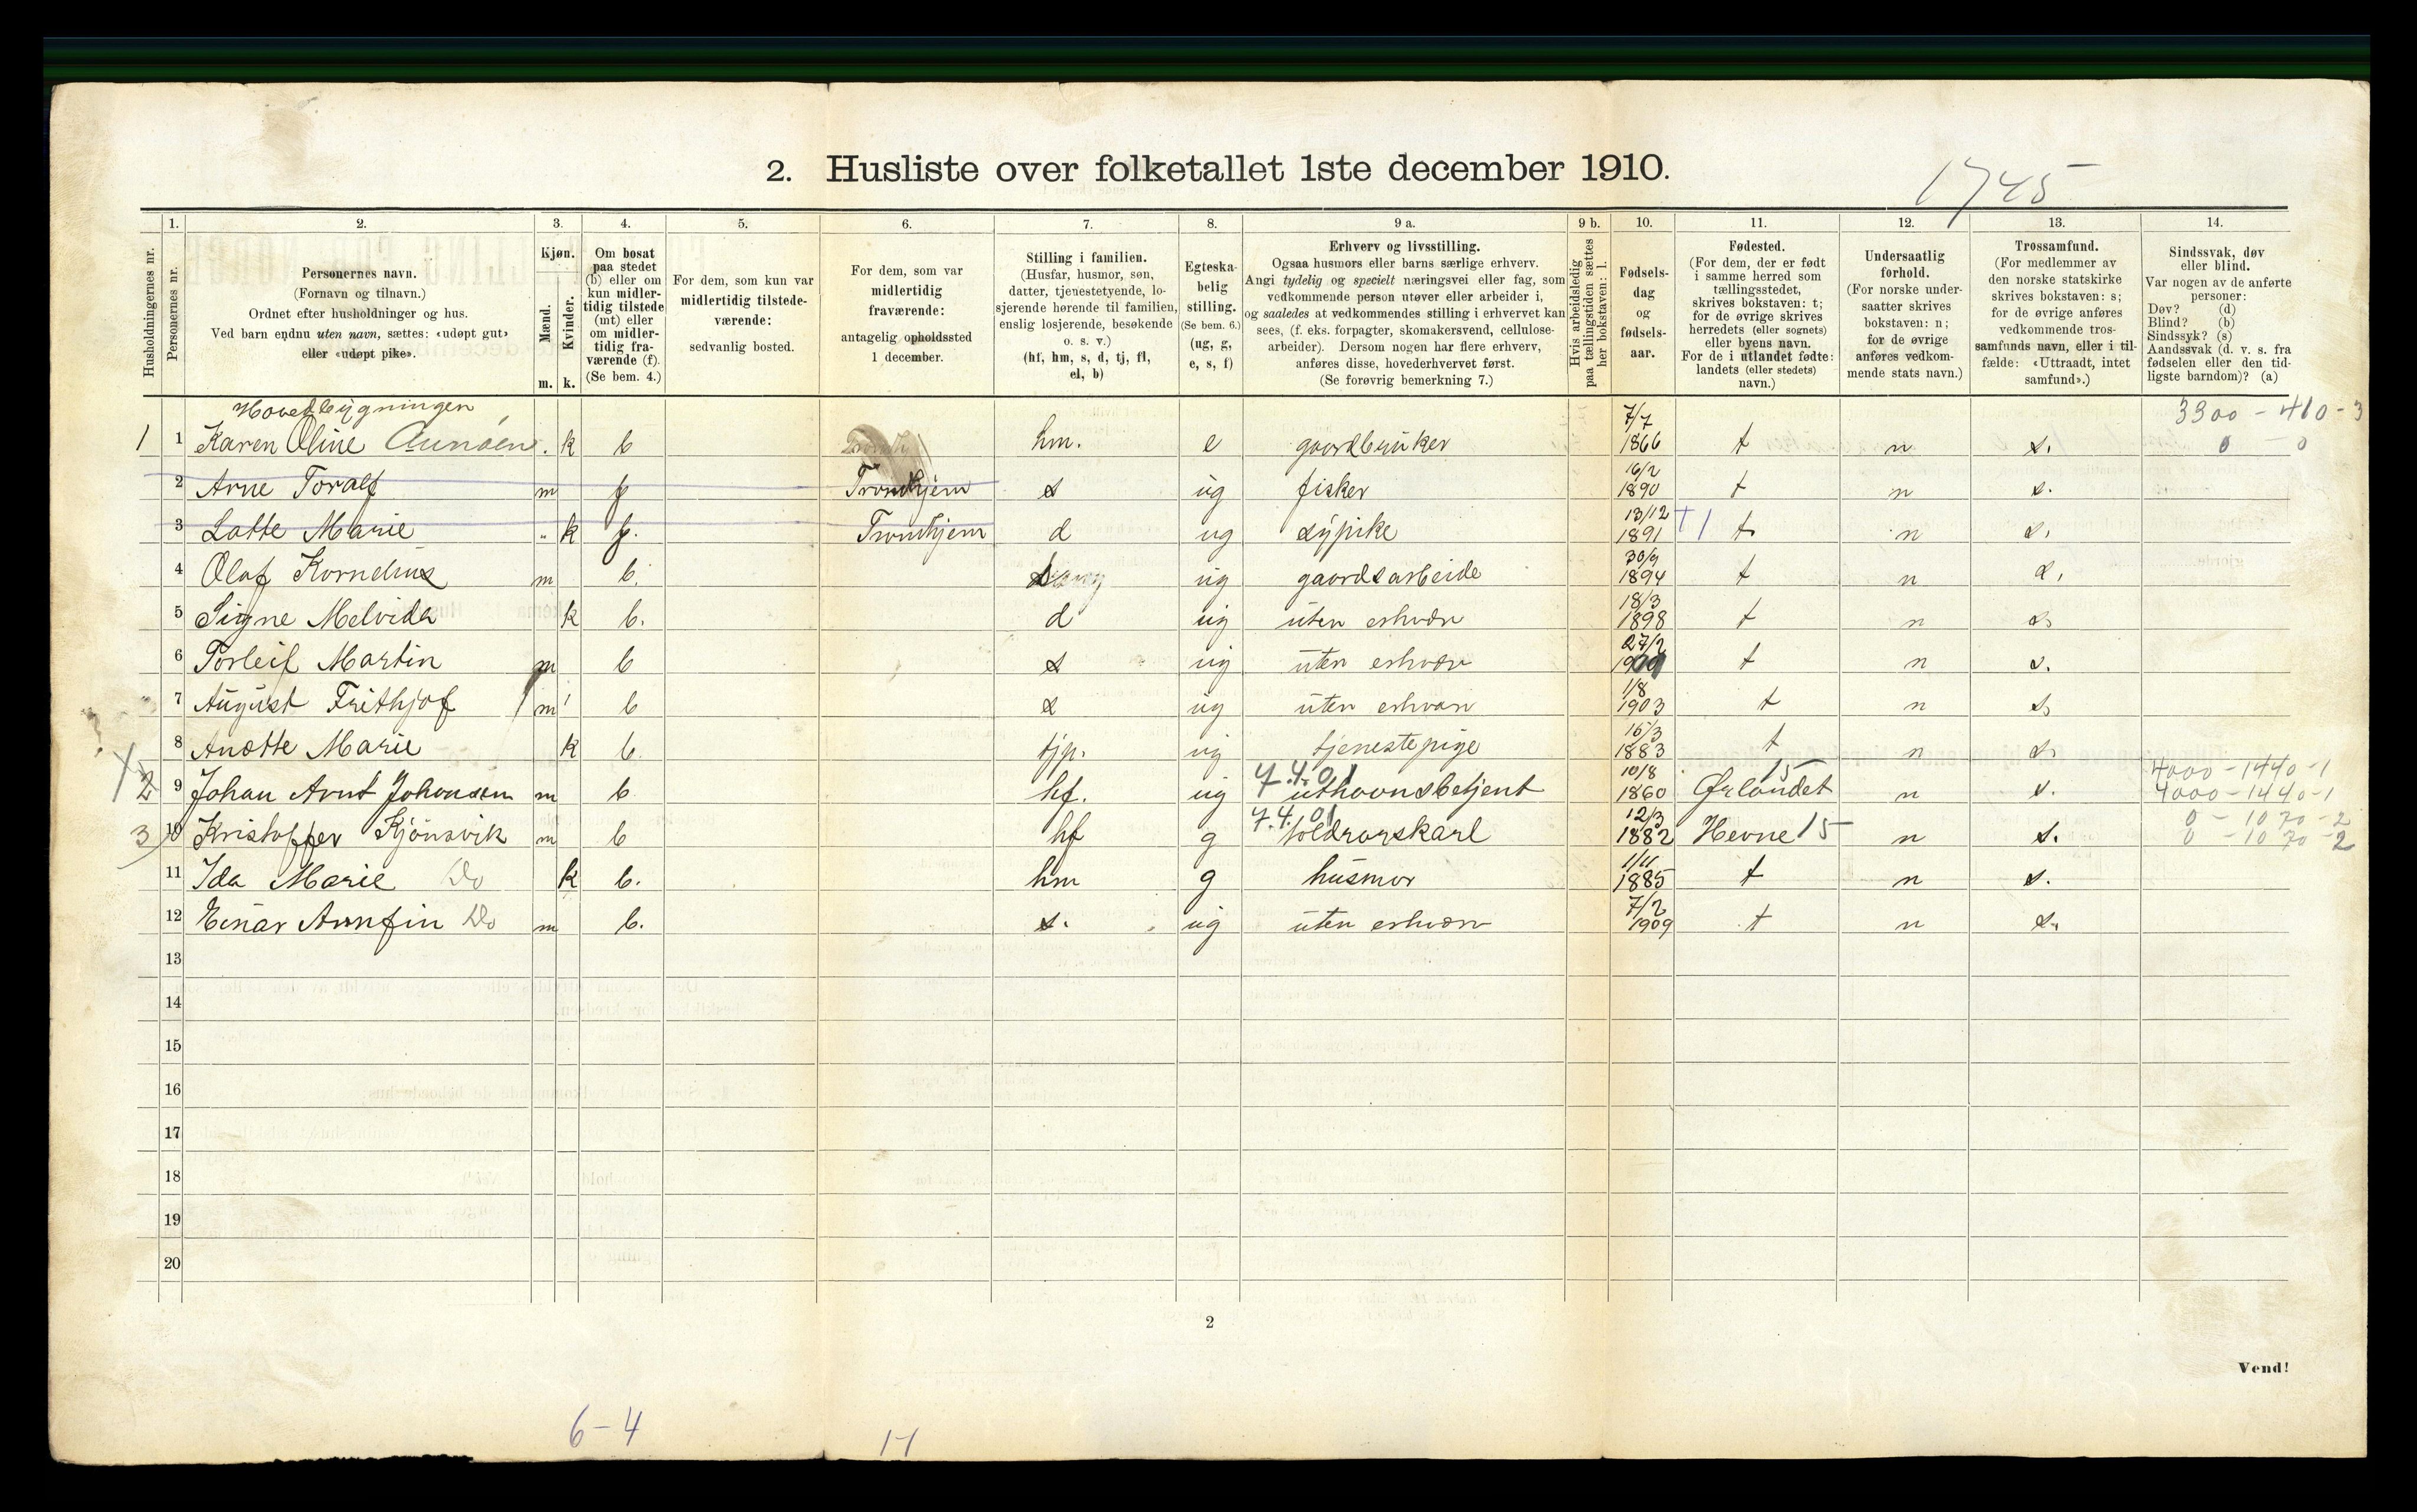 2. Husliste over folketallet 1ste december 1910.
1745
1. 2. 3. 4. 5. 6. 7. 8. 9 a. 9 b. 10. 11. 12. 13. 14.
Husholdningernes nr.
Personernes nr.
Personernes navn.
(Fornavn og tilnavn.)
Ordnet efter husholdninger og hus.
Ved barn endnu uten navn, sættes: «udøpt gut»
eller «udøpt pike».
Kjøn.
Mænd.
Kvinder.
m. k.
Om bosat
paa stedet
(b) eller om
kun midler-
tidig tilstede
(mt) eller
om midler-
tidig fra-
værende (f).
(Se bem. 4.)
For dem, som kun var
midlertidig tilstede-
værende:
sedvanlig bosted.
For dem, som var
midlertidig
fraværende:
antagelig opholdssted
1 december.
Stilling i familien.
(Husfar, husmor, søn,
datter, tjenestetyende, lo-
sjerende hørende til familien,
enslig losjerende, besøkende
o. s. v.)
(hf, hm, s, d, tj, fl,
el, b)
Egteska-
belig
stilling.
(Se bem. 6.)
(ug, g,
e, s, f)
Erhverv og livsstilling.
Ogsaa husmors eller barns særlige erhverv.
Angi tydelig og specielt næringsvei eller fag, som
vedkommende person utøver eller arbeider i,
og saaledes at vedkommendes stilling i erhvervet kan
sees, (f. eks. forpagter, skomakersvend, cellulose-
arbeider). Dersom nogen har flere erhverv,
anføres disse, hovederhvervet først.
(Se forøvrig bemerkning 7.)
Hvis arbeidsledig
paa tællingstiden sættes
her bokstaven: l.
Fødsels-
dag
og
fødsels-
aar.
Fødested.
(For dem, der er født
i samme herred som
tællingsstedet,
skrives bokstaven: t;
for de øvrige skrives
herredets (eller sognets)
eller byens navn.
For de i utlandet fødte:
landets (eller stedets)
navn.)
Undersaatlig
forhold.
(For norske under-
saatter skrives
bokstaven: n;
for de øvrige
anføres vedkom-
mende stats navn.)
Trossamfund.
(For medlemmer av
den norske statskirke
skrives bokstaven: s;
for de øvrige anføres
vedkommende tros-
samfunds navn, eller i til-
fælde: «Uttraadt, intet
samfund».)
Sindssvak, døv
eller blind.
Var nogen av de anførte
personer:
Døv? (d)
Blind? (b)
Sindssyk? (s)
Aandssvak (d. v. s. fra
fødselen eller den tid-
ligste barndom)? (a)
Hovedbygningen 7/7 3300 - 410 - 3
1 1 Karen Oline Aunøen . k b hm. e gaardbruker 1866 t n s. 0 - 0
16/2
2 Arne Toralf m f Trondhjem s ug fisker 1890 t n s.
13/12
3 Lotte Marie " k f. Trondhjem d ug sypike 1891 t n s.
30/9
4 Olaf Kornelius m b. s ug gaardsarbeide 1894 t n s.
18/3
5 Signe Melvida k b. d ug uten erhverv 1898 t n s
27/2
6 Torleif Martin m b s ug uten erhverv t n s.
1/8
7 August Frithjof m b s ug uten erhverv 1903 t n s
15/3
8 Anætte Marie k b. tjp. ug tjenestepige 1883 t n s
7.4.01 10/8 15 4000 - 1440 - 1
2 9 Johan Arnt Johansen m b hf. ug uthavnsbetjent 1860 Ørlandet n s. 4000 - 1440 - 1
7.4.01 12/3 0 - 1070 - 2
3 10 Kristoffer Kjønsvik m b hf g toldrorskarl 1882 Hevne 15 n s. 0 - 1070 - 2
1/11
11 Ida Marie Do k b. hm g husmor 1885 t n s.
7/2
12 Einar Arnfin Do m b. s. ug uten erhverv 1909 t n s.
13
14
15
16
17
18
19
20
2
Vend!
6-4